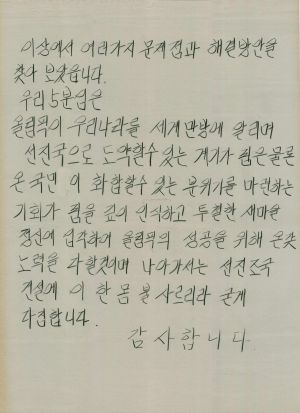 이상에서 여러가지 문제점과 해결방안을
찾아 보았습니다.
우리 5분임은
올림픽이 우리나라를 세계만방에 알리며
선진국으로 도약할수 있는 계기가 됨은 물론
온 국민이 화합할수 있는 분위기를 마련하는
기회가 됨을 깊이 인식하고 투철한 새마을
정신에 입각하여 올림픽의 성공을 위해 온갖
노력을 다 할것이며 나아가서는 선진조국
건설에 이 한몸 불 사르리라 굳게
다짐합니다.
감사합니다